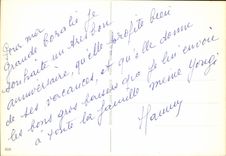 Pour ma
grande
souhaite un très bon
anniversaire, qu'elle profite bien
de ses vacances, et qu'elle donne
les bons gros baisers que je lui envoie
à toute la famille même